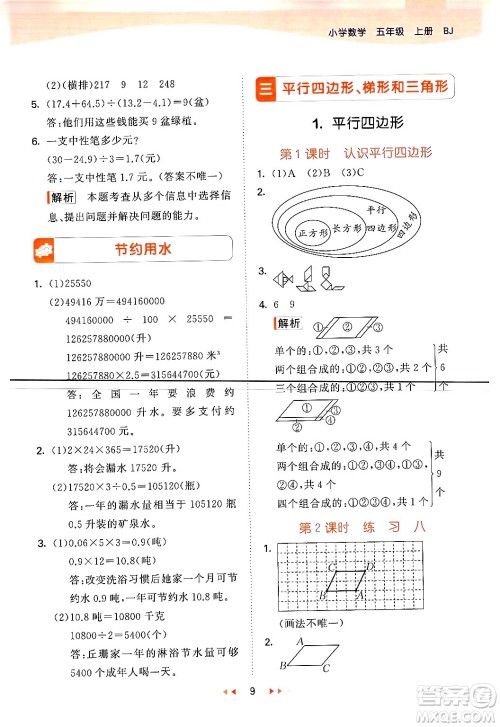 小学数学 五年级 上册 BJ
(2)(横排)217 9 12 248
5. (17.4+64.5)÷(3.5+5.6)=9(盆)
答:他们用这些钱能买 9 盆绿植。
6. 一支中性笔多少元?
(30-24.9)÷3=1.7(元)
答:一支中性笔 1.7 元。(答案不唯一)
解析 本题考查从多个信息中选择信息,提出问题并解决问题的能力。
节约用水
1. (1)25550
(2)49416 万=494160000
494160000 ÷ 100 × 25550 =
126257880000(升)
126257880000升=126257880 米³
126257880×2.5=315644700(元)
答: 全国一年要浪费约
126257880000 升水。要多支付约
315644700 元。
2. (1)2×24×365=17520(升)
答:将会漏水 17520 升。
(2)17520÷(2×
答:一年的漏水量大约有 105120 瓶
0.5 升装的矿泉水。
3. (1)0.06×5×3=0.9(吨)
0.9×12=10.8(吨)
答:改变洗浴习惯后她家一年可节
约用水 10.8 吨。
(2)10.8 吨=10800 千克
10800÷2=5400(个)
答:丘珊家一年的淋浴节水量可够
5400 个成年人喝一天。
三 平行四边形、梯形和三角形
1. 平行四边形
第 1 课时 认识平行四边形
1. (1)A (2)B (3)C
2.
平行
四边形
正方形 长方形 四边形
3.
4. 6 9
解析
① ② ③
单个的:①,②,③,共 3 个
两个组合成的:①②,②③,共 2 个
三个组合成的:①②③,共 1 个
共 6 个
单个的:①,②,③,④,共 4 个
两个组合成的:①②,③④,①③,②④,共 4 个
四个组合成的:①②③④,共 1 个
共 9 个
第 2 课时 练 习 八
1.
C D
A B
(画法不唯一)
2.
A D
B C
9
答案圈
MXQE.COM